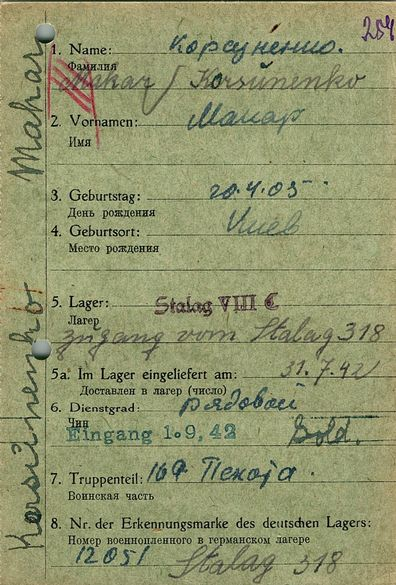 254
1. Name: Корсуненко.
Фамилия
Makar / Korsunenko
2. Vornamen: Макар
Имя
3. Geburtstag: 20.4.05
День рождения
4. Geburtsort: Киев
Место рождения
5. Lager: Stalag VIII C
Лагер
Zugang vom Stalag 318
5a. Im Lager eingeliefert am: 31.7.42
Доставлен в лагер (число)
6. Dienstgrad: рядовой
Чин
Eingang 1.9,42 Sold.
7. Truppenteil: Пехота.
Воинская часть
8. Nr. der Erkennungsmarke des deutschen Lagers:
Номер военнопленного в германском лагере
12051 Stalag 318
Korsunenko Makar